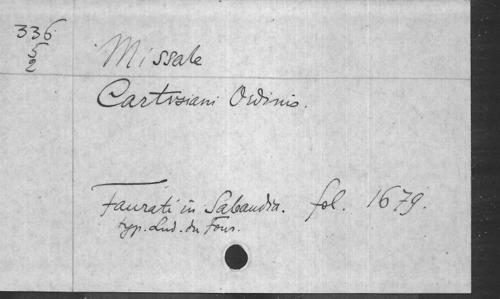 336
5
2
Missale
Cartusiani Ordinis.
Faurati in Sabaudia. fol. 1679.
typ. Lud. du Four.